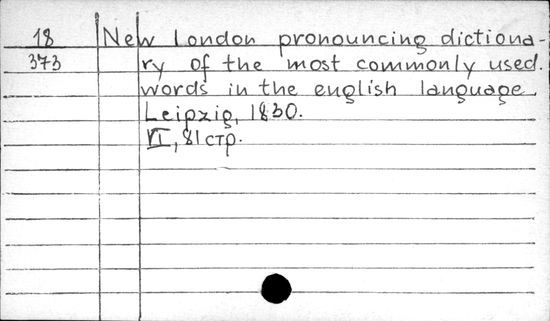 18 New London pronouncing dictiona-
373 ry of the most commonly used.
words in the english language.
Leipzig, 1830.
VI, 81 стр.